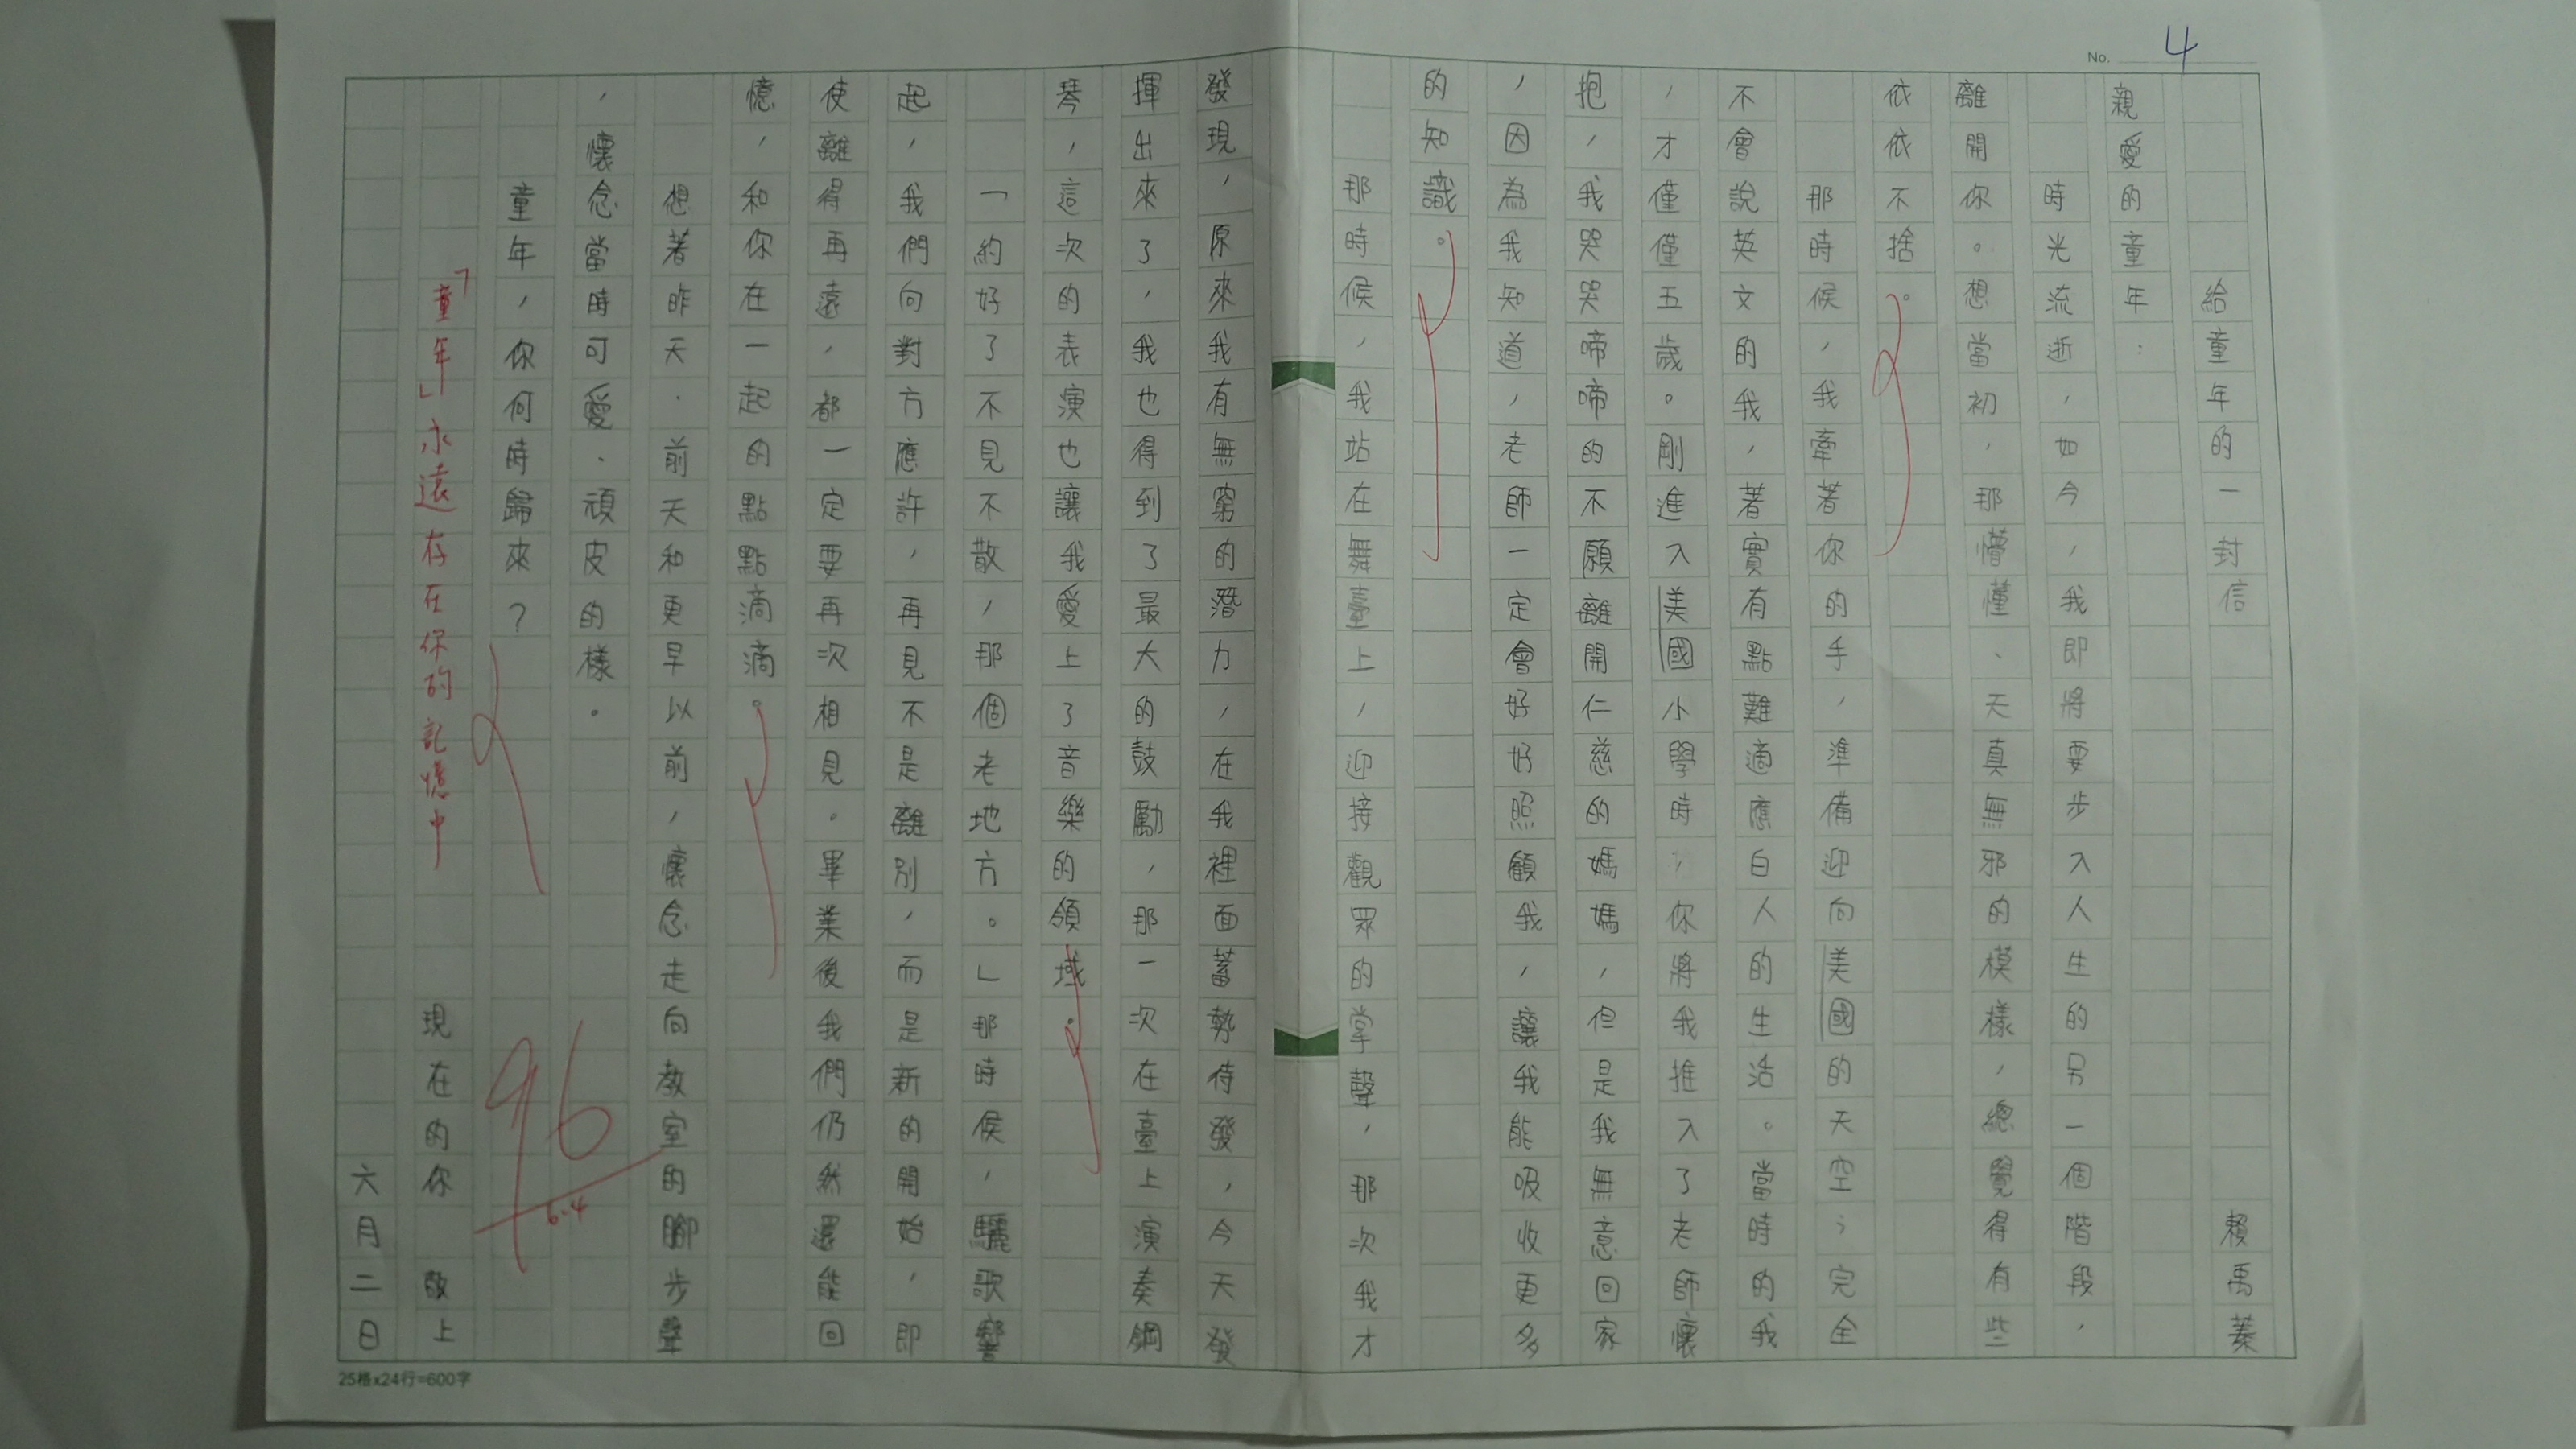 No. 4
給童年的一封信 賴禹蓁
親愛的童年：
時光流逝，如今，我即將要步入人生的另一個階段，
離開你。想當初，那懵懂、天真無邪的模樣，總覺得有些
依依不捨。
那時候，我牽著你的手，準備迎向美國的天空；完全
不會說英文的我，著實有點難適應白人的生活。當時的我
，才僅僅五歲。剛進入美國小學時，你將我推入了老師懷
抱，我哭哭啼啼的不願離開仁慈的媽媽，但是我無意回家
，因為我知道，老師一定會好好照顧我，讓我能吸收更多
的知識。
那時候，我站在舞臺上，迎接觀眾的掌聲，那次我才
發現，原來我有無窮的潛力，在我裡面蓄勢待發，今天發
揮出來了，我也得到了最大的鼓勵，那一次在臺上演奏鋼
琴，這次的表演也讓我愛上了音樂的領域。
「約好了不見不散，那個老地方。」那時侯，驪歌響
起，我們向對方應許，再見不是離別，而是新的開始，即
使離得再遠，都一定要再次相見。畢業後我們仍然還能回
憶，和你在一起的點點滴滴。
想著昨天．前天和更早以前，懷念走向教室的腳步聲
，懷念當時可愛、頑皮的樣。
童年，你何時歸來？
96
6.4
「童年」永遠存在你的記憶中
現在的你 敬上
六月二日
25格x24行=600字